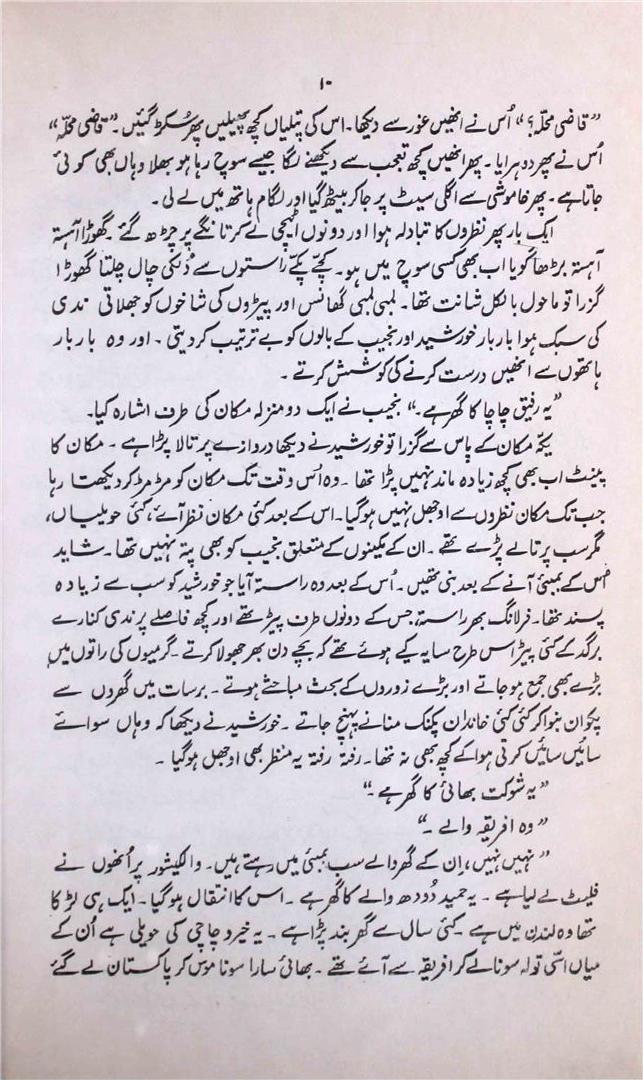 ۱۰
”قاضی محلّہ؟“ اُس نے انھیں غور سے دیکھا۔ اس کی پتلیاں کچھ پھیلیں پھر سُکڑ گئیں۔ ”قاضی محلّہ“
اُس نے پھر دوہرایا۔ پھر انھیں کچھ تعجب سے دیکھنے لگا جیسے سوچ رہا ہو بھلا وہاں بھی کوئی
جاتا ہے۔ پھر خاموشی سے اگلی سیٹ پر جا کر بیٹھ گیا اور لگام ہاتھ میں لے لی۔
ایک بار پھر نظروں کا تبادلہ ہوا اور دونوں اٹیچی لے کر تانگے پر چڑھ گئے۔ گھوڑا آہستہ
آہستہ بڑھا گویا اب بھی کسی سوچ میں ہو۔ کچّے پکّے راستوں سے دُلکی چال چلتا گھوڑا
گزرا تو ماحول بالکل شانت تھا۔ لمبی لمبی گھانس اور پیڑوں کی شاخوں کو جھلاتی ندی
کی سبک ہوا بار بار خورشید اور نجیب کے بالوں کو بے ترتیب کر دیتی۔ اور وہ بار بار
ہاتھوں سے انھیں درست کرنے کی کوشش کرتے۔
”یہ رفیق چاچا کا گھر ہے۔“ نجیب نے ایک دو منزلہ مکان کی طرف اشارہ کیا۔
یکّہ مکان کے پاس سے گزرا تو خورشید نے دیکھا دروازے پر تالا پڑا ہے۔ مکان کا
پینٹ اب بھی کچھ زیادہ ماند نہیں پڑا تھا۔ وہ اُس وقت تک مکان کو مڑ مڑ کر دیکھتا رہا
جب تک مکان نظروں سے اوجھل نہیں ہو گیا۔ اس کے بعد کئی مکان نظر آئے، کئی حویلیاں،
مگر سب پر تالے پڑے تھے۔ ان کے مکینوں کے متعلق نجیب کو بھی پتہ نہیں تھا۔ شاید
اُس کے بمبئی آنے کے بعد بنی تھیں۔ اُس کے بعد وہ راستہ آیا جو خورشید کو سب سے زیادہ
پسند تھا۔ فرلانگ بھر راستہ، جس کے دونوں طرف پیڑ تھے اور کچھ فاصلے پر ندی کنارے
برگد کے کئی پیڑ اس طرح سایہ کیے ہوئے تھے کہ بچے دن بھر جھولا کرتے۔ گرمیوں کی راتوں میں
بڑے بھی جمع ہو جاتے اور بڑے زوروں کے بحث مباحثے ہوتے۔ برسات میں گھروں سے
پکوان بنوا کر کئی کئی خاندان پکنک منانے پہنچ جاتے۔ خورشید نے دیکھا کہ وہاں سوائے
سائیں سائیں کرتی ہوا کے کچھ بھی نہ تھا۔ رفتہ رفتہ یہ منظر بھی اوجھل ہو گیا۔
”یہ شوکت بھائی کا گھر ہے۔“
”وہ افریقہ والے۔“
”نہیں نہیں، اِن کے گھر والے سب بمبئی میں رہتے ہیں۔ والکیشور پر اُنھوں نے
فلیٹ لے لیا ہے۔ یہ حمید دُودھ والے کا گھر ہے۔ اس کا انتقال ہو گیا۔ ایک ہی لڑکا
تھا وہ لندن میں ہے۔ کئی سال سے گھر بند پڑا ہے۔ یہ خیرو چاچی کی حویلی ہے اُن کے
میاں اسّی تولہ سونا لے کر افریقہ سے آئے تھے۔ بھائی سارا سونا موس کر پاکستان لے گئے